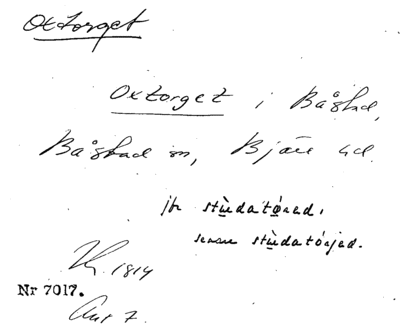 Oxtorget
Oxtorget i Båstad,
Båstad sn, Bjäre hd.
jfr stùdatóred,
senare stùdatórjed.
1814
Nr 7017.